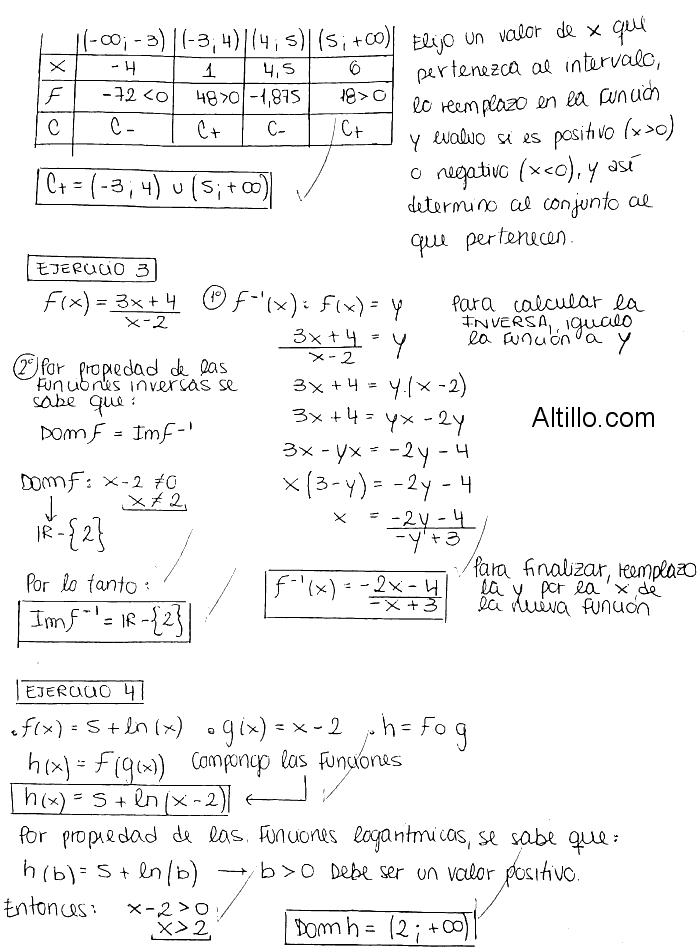 (-∞; -3) | (-3; 4) | (4; 5) | (5; +∞)
x | -4 | 1 | 4,5 | 6
F | -72<0 | 48>0 | -1,875 | 18>0
C | C- | C+ | C- | C+
C+ = (-3; 4) ∪ (5; +∞)
Elijo un valor de x que
pertenezca al intervalo,
lo reemplazo en la función
y evaluo si es positivo (x>0)
o negativo (x<0), y así
determino al conjunto al
que pertenecen.
EJERCICIO 3
F(x) = 3x+4 / x-2
2° Por propiedad de las
funciones inversas se
sabe que:
Dom F = Im F⁻¹
Dom F: x-2 ≠0
x ≠ 2
↓
IR-{2}
Por lo tanto:
Im F⁻¹ = IR-{2}
1° F⁻¹(x): F(x) = y
3x+4 / x-2 = y
3x+4 = y.(x-2)
3x+4 = yx-2y
3x-yx = -2y-4
x(3-y) = -2y-4
x = -2y-4 / -y+3
F⁻¹(x) = -2x-4 / -x+3
Para calcular la
INVERSA, igualo
la función a y
Altillo.com
Para finalizar, reemplazo
la y por la x, de
la nueva función
EJERCICIO 4
. f(x) = 5+ln(x) . g(x) = x-2 . h = F o g
h(x) = F(g(x)) Compongo las funciones
h(x) = 5+ln(x-2) ←
Por propiedad de las funciones logarítmicas, se sabe que:
h(b) = 5+ln(b) → b>0 Debe ser un valor positivo.
Entonces: x-2>0
x>2
Dom h = (2; +∞)